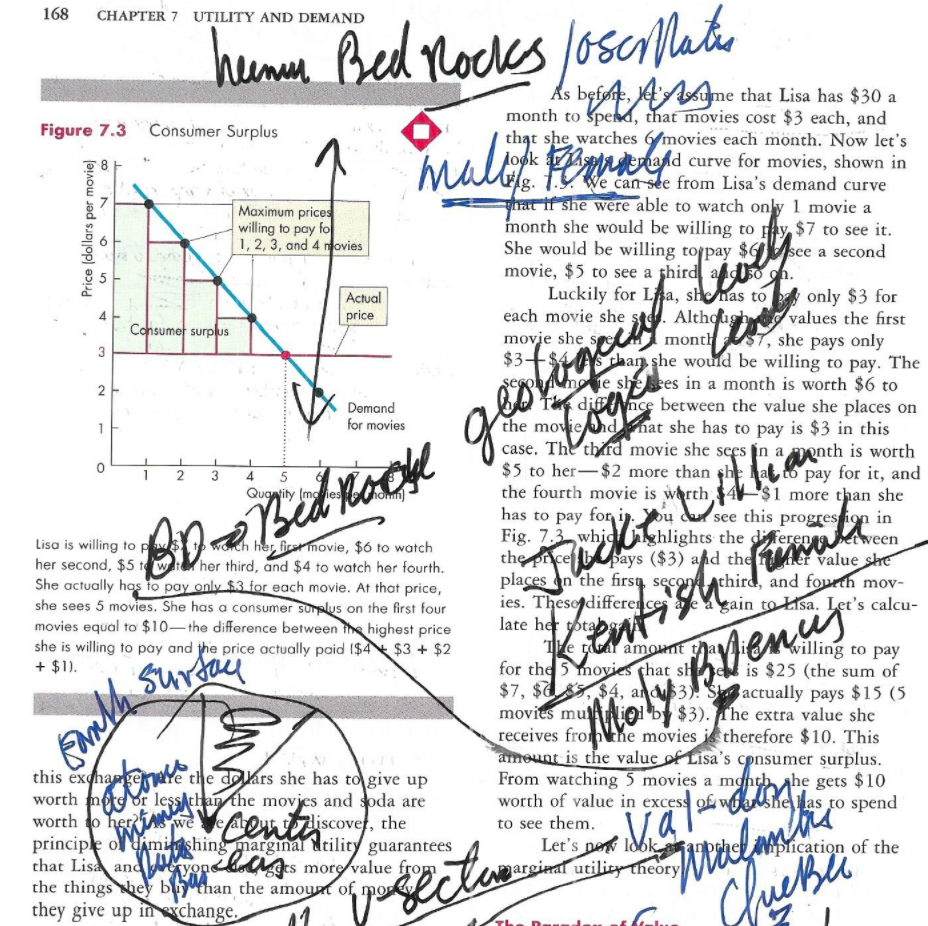 168 CHAPTER 7 UTILITY AND DEMAND
Bed Rocks
Figure 7.3 Consumer Surplus
Price (dollars per movie)
8
7
6
5
4
3
2
1
0
Maximum prices
willing to pay for
1, 2, 3, and 4 movies
Actual
price
Consumer surplus
Demand
for movies
1 2 3 4 5 6 7 8
Quantity (movies per month)
BD → Bed Rocks
Lisa is willing to pay $7 to watch her first movie, $6 to watch
her second, $5 to watch her third, and $4 to watch her fourth.
She actually has to pay only $3 for each movie. At that price,
she sees 5 movies. She has a consumer surplus on the first four
movies equal to $10—the difference between the highest price
she is willing to pay and the price actually paid ($4 + $3 + $2
+ $1).
Earth surface
atomic
Center
this exchange. Are the dollars she has to give up
worth more or less than the movies and soda are
worth to her? As we are about to discover, the
principle of diminishing marginal utility guarantees
that Lisa, and everyone else, gets more value from
the things they buy than the amount of money
they give up in exchange.
V-section
male/Female
As before, let's assume that Lisa has $30 a
month to spend, that movies cost $3 each, and
that she watches 6 movies each month. Now let's
look at Lisa's demand curve for movies, shown in
Fig. 7.3. We can see from Lisa's demand curve
that if she were able to watch only 1 movie a
month she would be willing to pay $7 to see it.
She would be willing to pay $6 to see a second
movie, $5 to see a third, and so on.
Luckily for Lisa, she has to pay only $3 for
each movie she sees. Although she values the first
movie she sees in a month at $7, she pays only
$3—$4 less than she would be willing to pay. The
second movie she sees in a month is worth $6 to
her. The difference between the value she places on
the movie and what she has to pay is $3 in this
case. The third movie she sees in a month is worth
$5 to her—$2 more than she has to pay for it, and
the fourth movie is worth $4—$1 more than she
has to pay for it. You can see this progression in
Fig. 7.3, which highlights the difference between
the price she pays ($3) and the higher value she
places on the first, second, third, and fourth mov-
ies. These differences are a gain to Lisa. Let's calcu-
late her total gain.
The total amount that Lisa is willing to pay
for the 5 movies that she sees is $25 (the sum of
$7, $6, $5, $4, and $3). She actually pays $15 (5
movies multiplied by $3). The extra value she
receives from the movies is therefore $10. This
amount is the value of Lisa's consumer surplus.
From watching 5 movies a month, she gets $10
worth of value in excess of what she has to spend
to see them.
Let's now look at another implication of the
marginal utility theory.
geological Levels
Logic
Jack + Lillian
Kentish Female
Molybdenus
Val-dor
Malartic
Quebec
The Paradox of Value